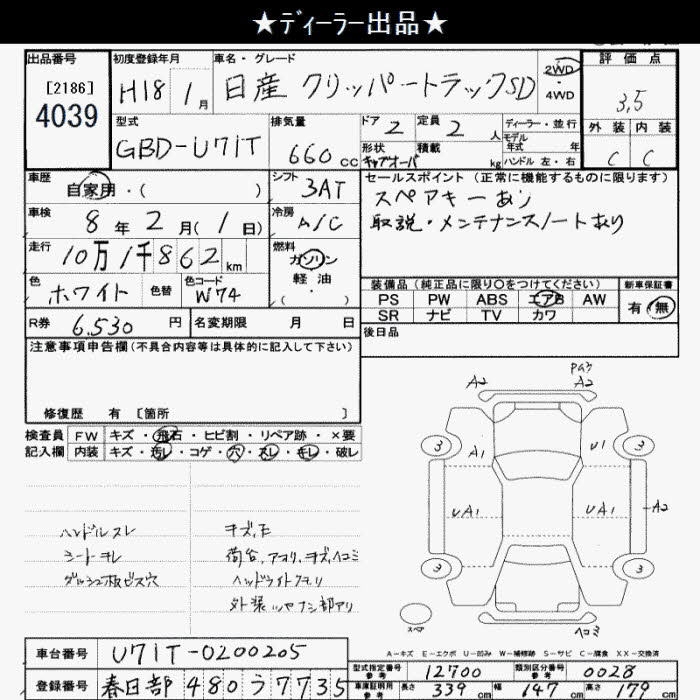 ★ディーラー出品★
出品番号 初度登録年月 車名・グレード 評価点
[2186] H18 1月 日産 クリッパートラックSD 2WD・4WD 3.5
4039
型式 排気量 ドア 2 定員 2人 ディーラー・並行
GBD-U71T 660cc モデル年式 年
形状 キャブオーバ 積載 kg ハンドル 左・右
外装 内装
C C
車歴 自家用・( ) シフト 3AT
セールスポイント (正常に機能するものに限ります)
スペアキーあり
取説・メンテナンスノートあり
車検 8年2月(1日) 冷房 A/C
走行 10万1千862km 燃料 ガソリン 軽油 ・( )
色 ホワイト 色替 色コード W74
装備品(純正品に限り○をつけてください) 新車保証書
PS PW ABS エアB AW 有・無
SR ナビ TV カワ
R券 6,530円 名変期限 月 日
後日品
注意事項申告欄(不具合内容等は具体的に記入して下さい)
修復歴 有 [箇所 ]
検査員 FW キズ・飛石・ヒビ割・リペア跡・×要
記入欄 内装 キズ・汚レ・コゲ・穴・スレ・キレ・破レ
ハンドルスレ
シートキレ
キズ,凹
荷台,アオリ,キズ,ヘコミ
外装ツヤナシ部アリ
A2 A2
3 U1 3
A1
UA1 UA1 A2
3 3
スペア
ヘコミ
A-キズ E-エクボ U-凹み W-補修跡 S-サビ C-腐食 XX-交換済
車台番号 U71T-0200205
型式指定番号 参考 12700 類別区分番号 参考 0028
登録番号 春日部 480 う 7735
車庫証明用 参考 長さ 339cm 幅 147cm 高さ 179cm